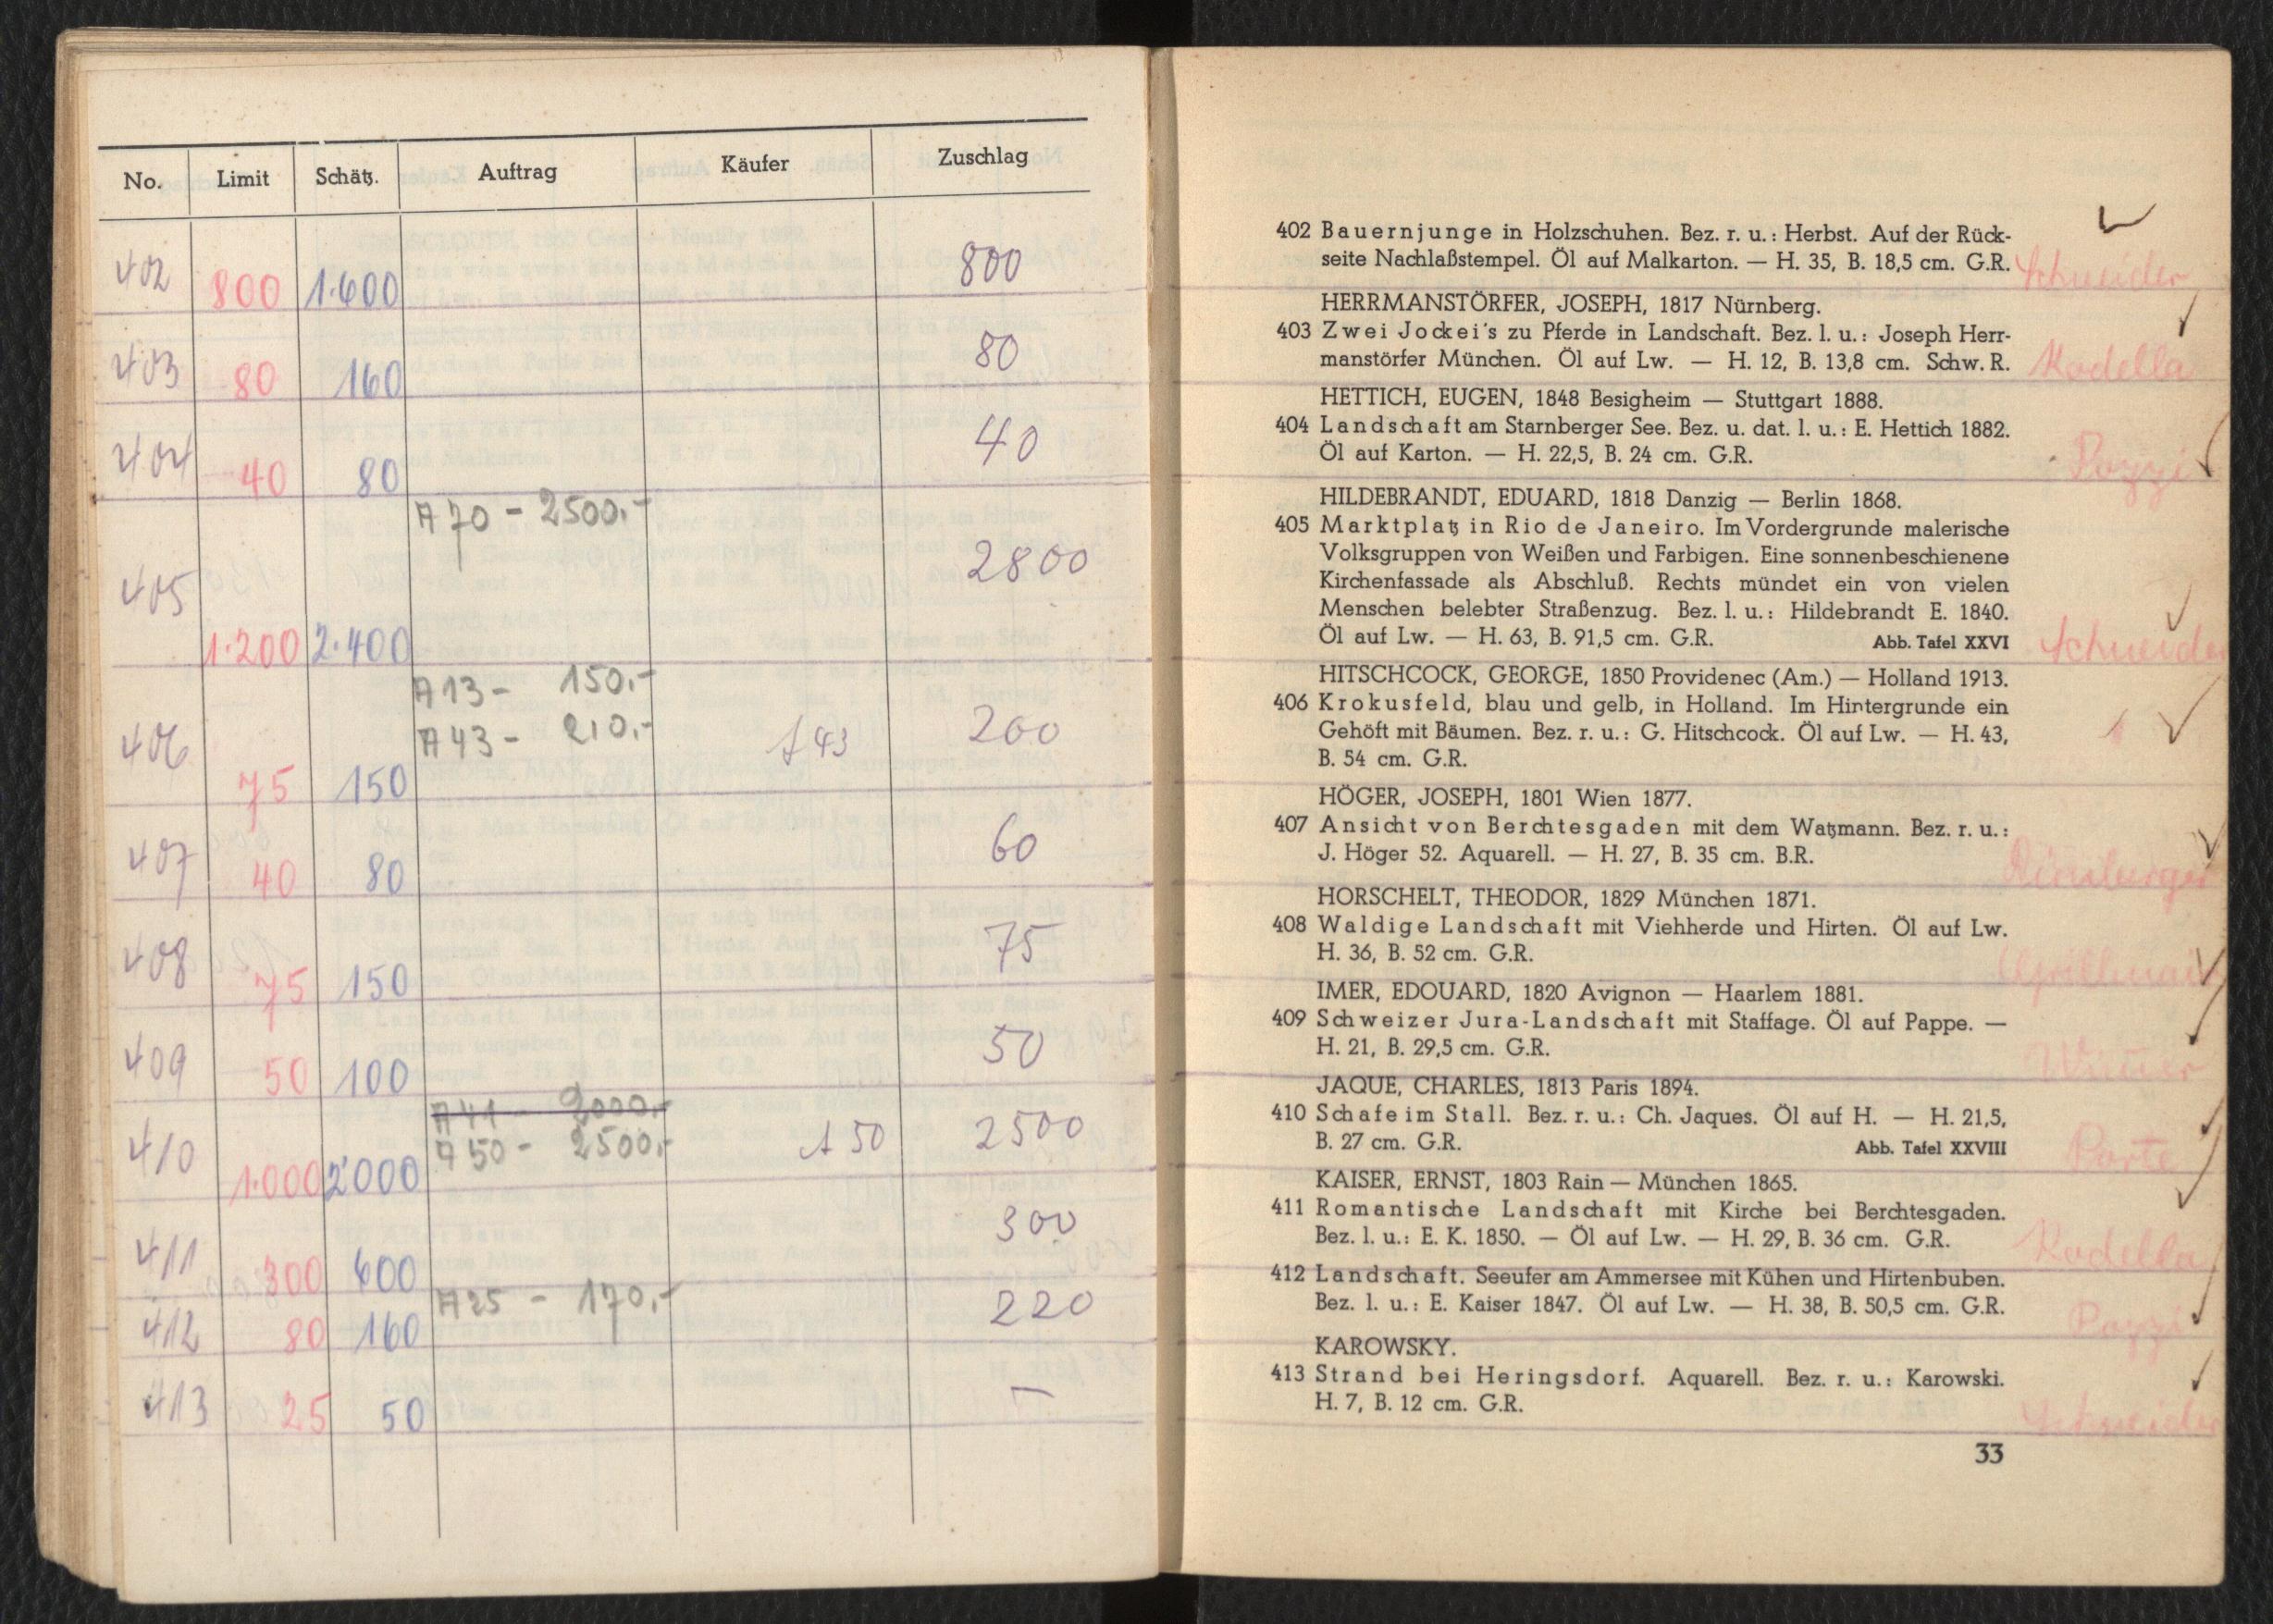 No. Limit Schätz. Auftrag Käufer Zuschlag
402 800 1·600 800
403 80 160 80
404 40 80 40
A 70 - 2500.-
405 1·200 2·400 2800
A 13 - 150.-
A 43 - 210.-
406 75 150 A 43 200
407 40 80 60
408 75 150 75
409 50 100 50
A 41 - 2000.-
A 50 - 2500.-
410 1·000 2'000 A 50 2500
411 300 600 300
A 25 - 170.-
412 80 160 220
413 25 50 —
402 Bauernjunge in Holzschuhen. Bez. r. u.: Herbst. Auf der Rück-
seite Nachlaßstempel. Öl auf Malkarton. — H. 35, B. 18,5 cm. G.R. Schneider
HERRMANSTÖRFER, JOSEPH, 1817 Nürnberg.
403 Zwei Jockei's zu Pferde in Landschaft. Bez. l. u.: Joseph Herr-
manstörfer München. Öl auf Lw. — H. 12, B. 13,8 cm. Schw. R. Rodella
HETTICH, EUGEN, 1848 Besigheim — Stuttgart 1888.
404 Landschaft am Starnberger See. Bez. u. dat. l. u.: E. Hettich 1882.
Öl auf Karton. — H. 22,5, B. 24 cm. G.R. Pozzi
HILDEBRANDT, EDUARD, 1818 Danzig — Berlin 1868.
405 Marktplatz in Rio de Janeiro. Im Vordergrunde malerische
Volksgruppen von Weißen und Farbigen. Eine sonnenbeschienene
Kirchenfassade als Abschluß. Rechts mündet ein von vielen
Menschen belebter Straßenzug. Bez. l. u.: Hildebrandt E. 1840.
Öl auf Lw. — H. 63, B. 91,5 cm. G.R. Abb. Tafel XXVI Schneider
HITSCHCOCK, GEORGE, 1850 Providenec (Am.) — Holland 1913.
406 Krokusfeld, blau und gelb, in Holland. Im Hintergrunde ein
Gehöft mit Bäumen. Bez. r. u.: G. Hitschcock. Öl auf Lw. — H. 43,
B. 54 cm. G.R.
HÖGER, JOSEPH, 1801 Wien 1877.
407 Ansicht von Berchtesgaden mit dem Watzmann. Bez. r. u.:
J. Höger 52. Aquarell. — H. 27, B. 35 cm. B.R.
HORSCHELT, THEODOR, 1829 München 1871.
408 Waldige Landschaft mit Viehherde und Hirten. Öl auf Lw.
H. 36, B. 52 cm. G.R.
IMER, EDOUARD, 1820 Avignon — Haarlem 1881.
409 Schweizer Jura-Landschaft mit Staffage. Öl auf Pappe. —
H. 21, B. 29,5 cm. G.R.
JAQUE, CHARLES, 1813 Paris 1894.
410 Schafe im Stall. Bez. r. u.: Ch. Jaques. Öl auf H. — H. 21,5,
B. 27 cm. G.R. Abb. Tafel XXVIII Porte
KAISER, ERNST, 1803 Rain — München 1865.
411 Romantische Landschaft mit Kirche bei Berchtesgaden.
Bez. l. u.: E. K. 1850. — Öl auf Lw. — H. 29, B. 36 cm. G.R. Rodella
412 Landschaft. Seeufer am Ammersee mit Kühen und Hirtenbuben.
Bez. l. u.: E. Kaiser 1847. Öl auf Lw. — H. 38, B. 50,5 cm. G.R. Pozzi
KAROWSKY.
413 Strand bei Heringsdorf. Aquarell. Bez. r. u.: Karowski.
H. 7, B. 12 cm. G.R. Schneider
33